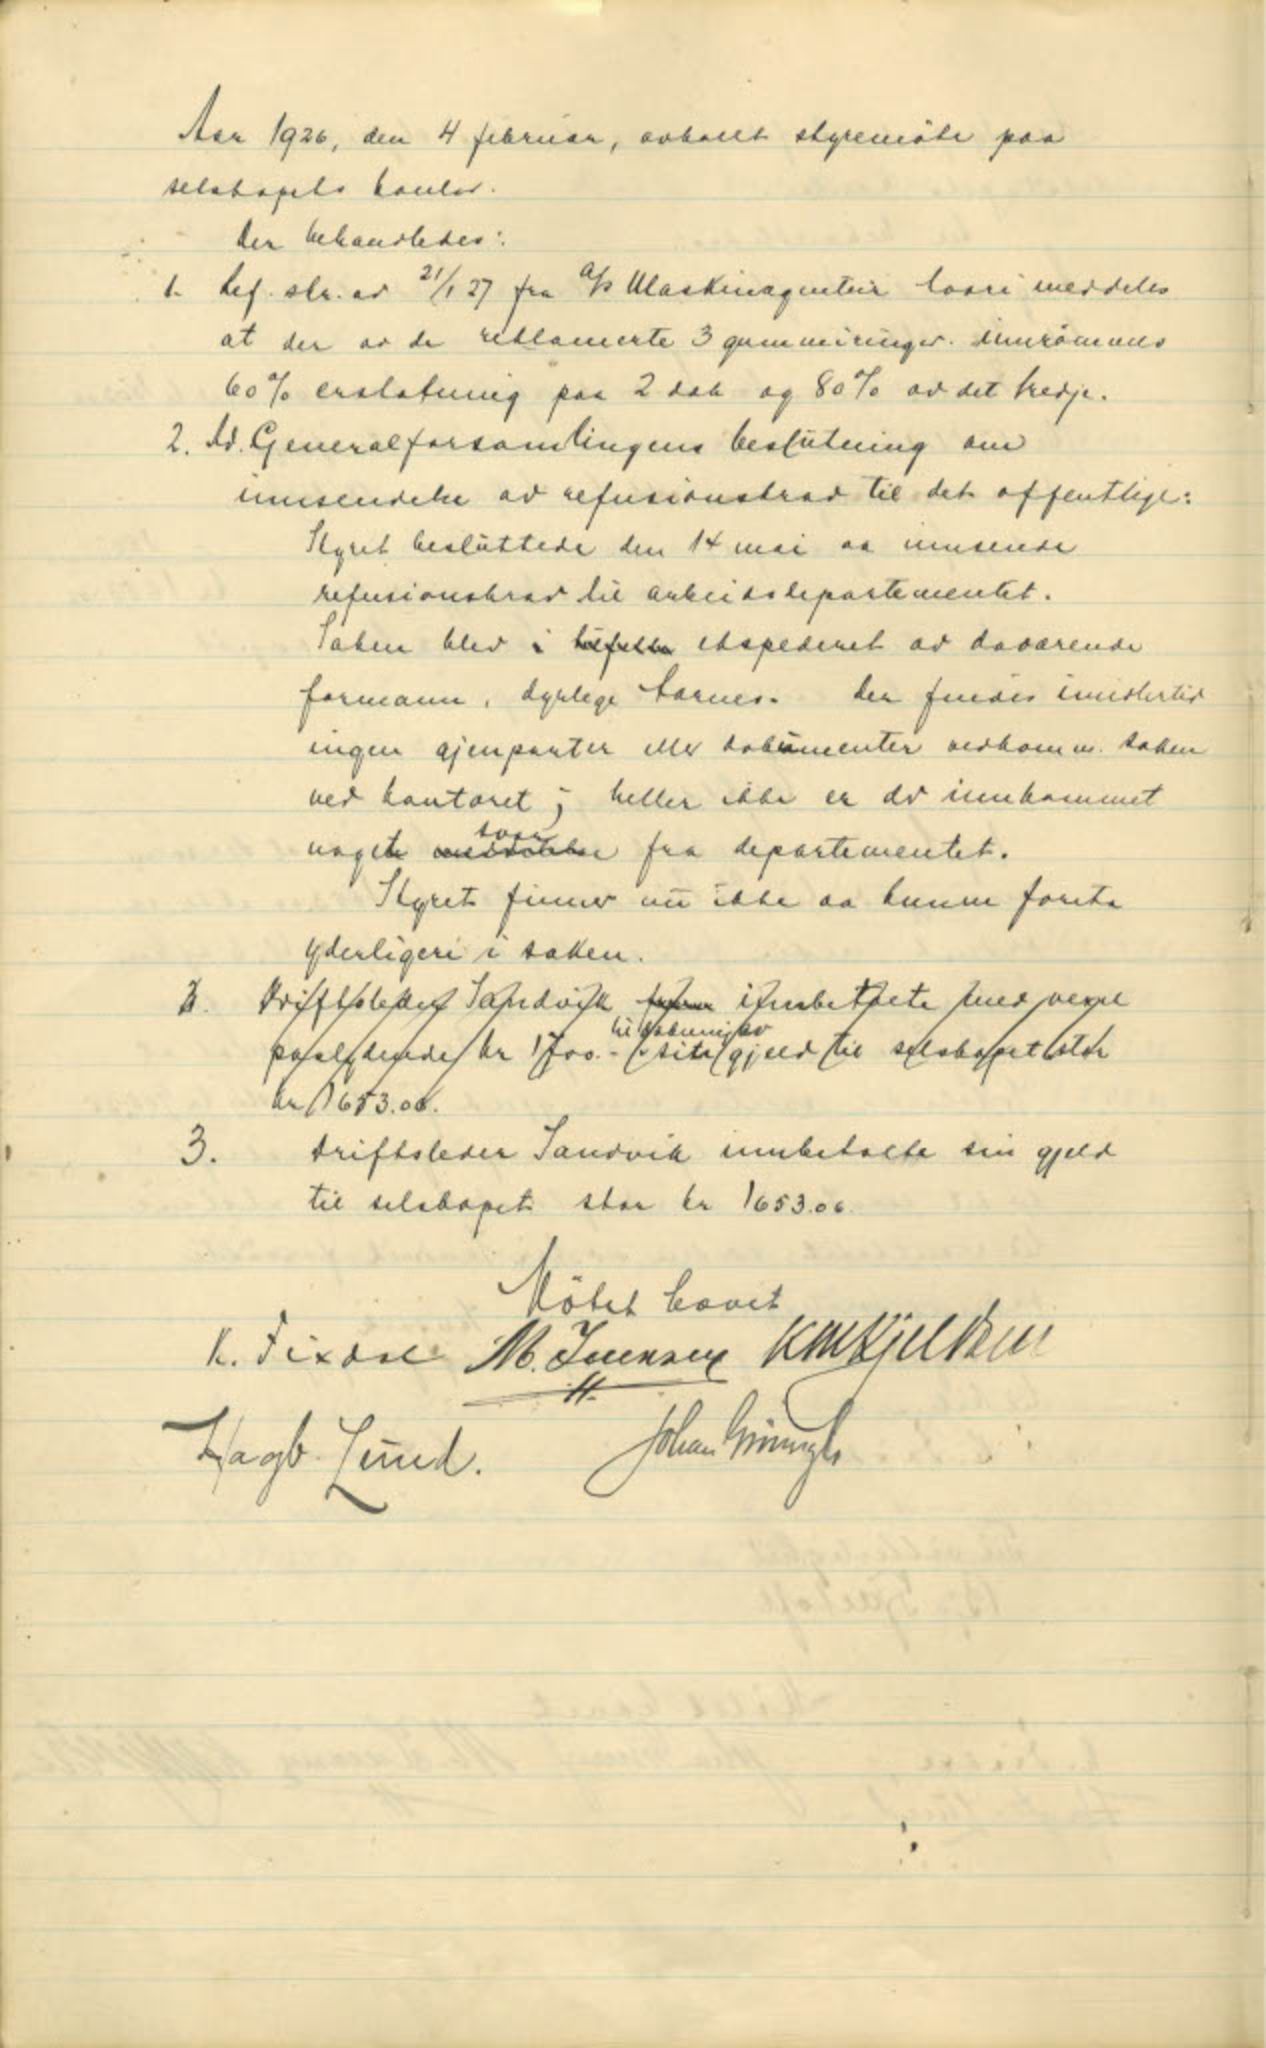 Aar 1926, den 4 februar, avholdt styremöte paa
selskapets kontor.
Der behandledes:
1. Ref. skr. av 21/1 27 fra A/S Maskinagentur hvori meddeles
at der av de reklamerte 3 gummiringer innrömmes
60% erstatning paa 2 stk og 80% av det tredje.
2. Ad. Generalforsamlingens beslutning om
innsendelse av refusionskrav til det offentlige:
Styret besluttede den 14 mai aa innsende
refusionskrav til arbeidsdepartementet.
Saken blev i ekspederet av daværende
formann, dyrlege Aarnes. Der findes imidlertid
ingen gjenparter eller dokumenter vedkomm. saken
ved kontoret; heller ikke er der innkommet
noget svar fra departementet.
Styret finner nu ikke aa kunne foreta
yderligere i saken.
3. Driftsleder Sandvik innbetalte med vexel
paalydende kr 1700.- til dekning av sin gjeld til selskapet stor
kr 1653.06.
3. Driftsleder Sandvik innbetalte sin gjeld
til selskapet stor kr 1653.06.
Mötet hævet
K. Fixdal M. Iversen
Hagb. Lund. Johan